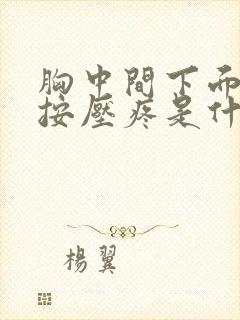 胸中間下而
按壓疼是什
楊翼